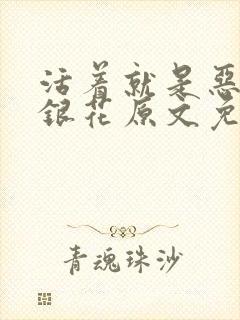 活着就是恶
银花原文免
青魂珠沙